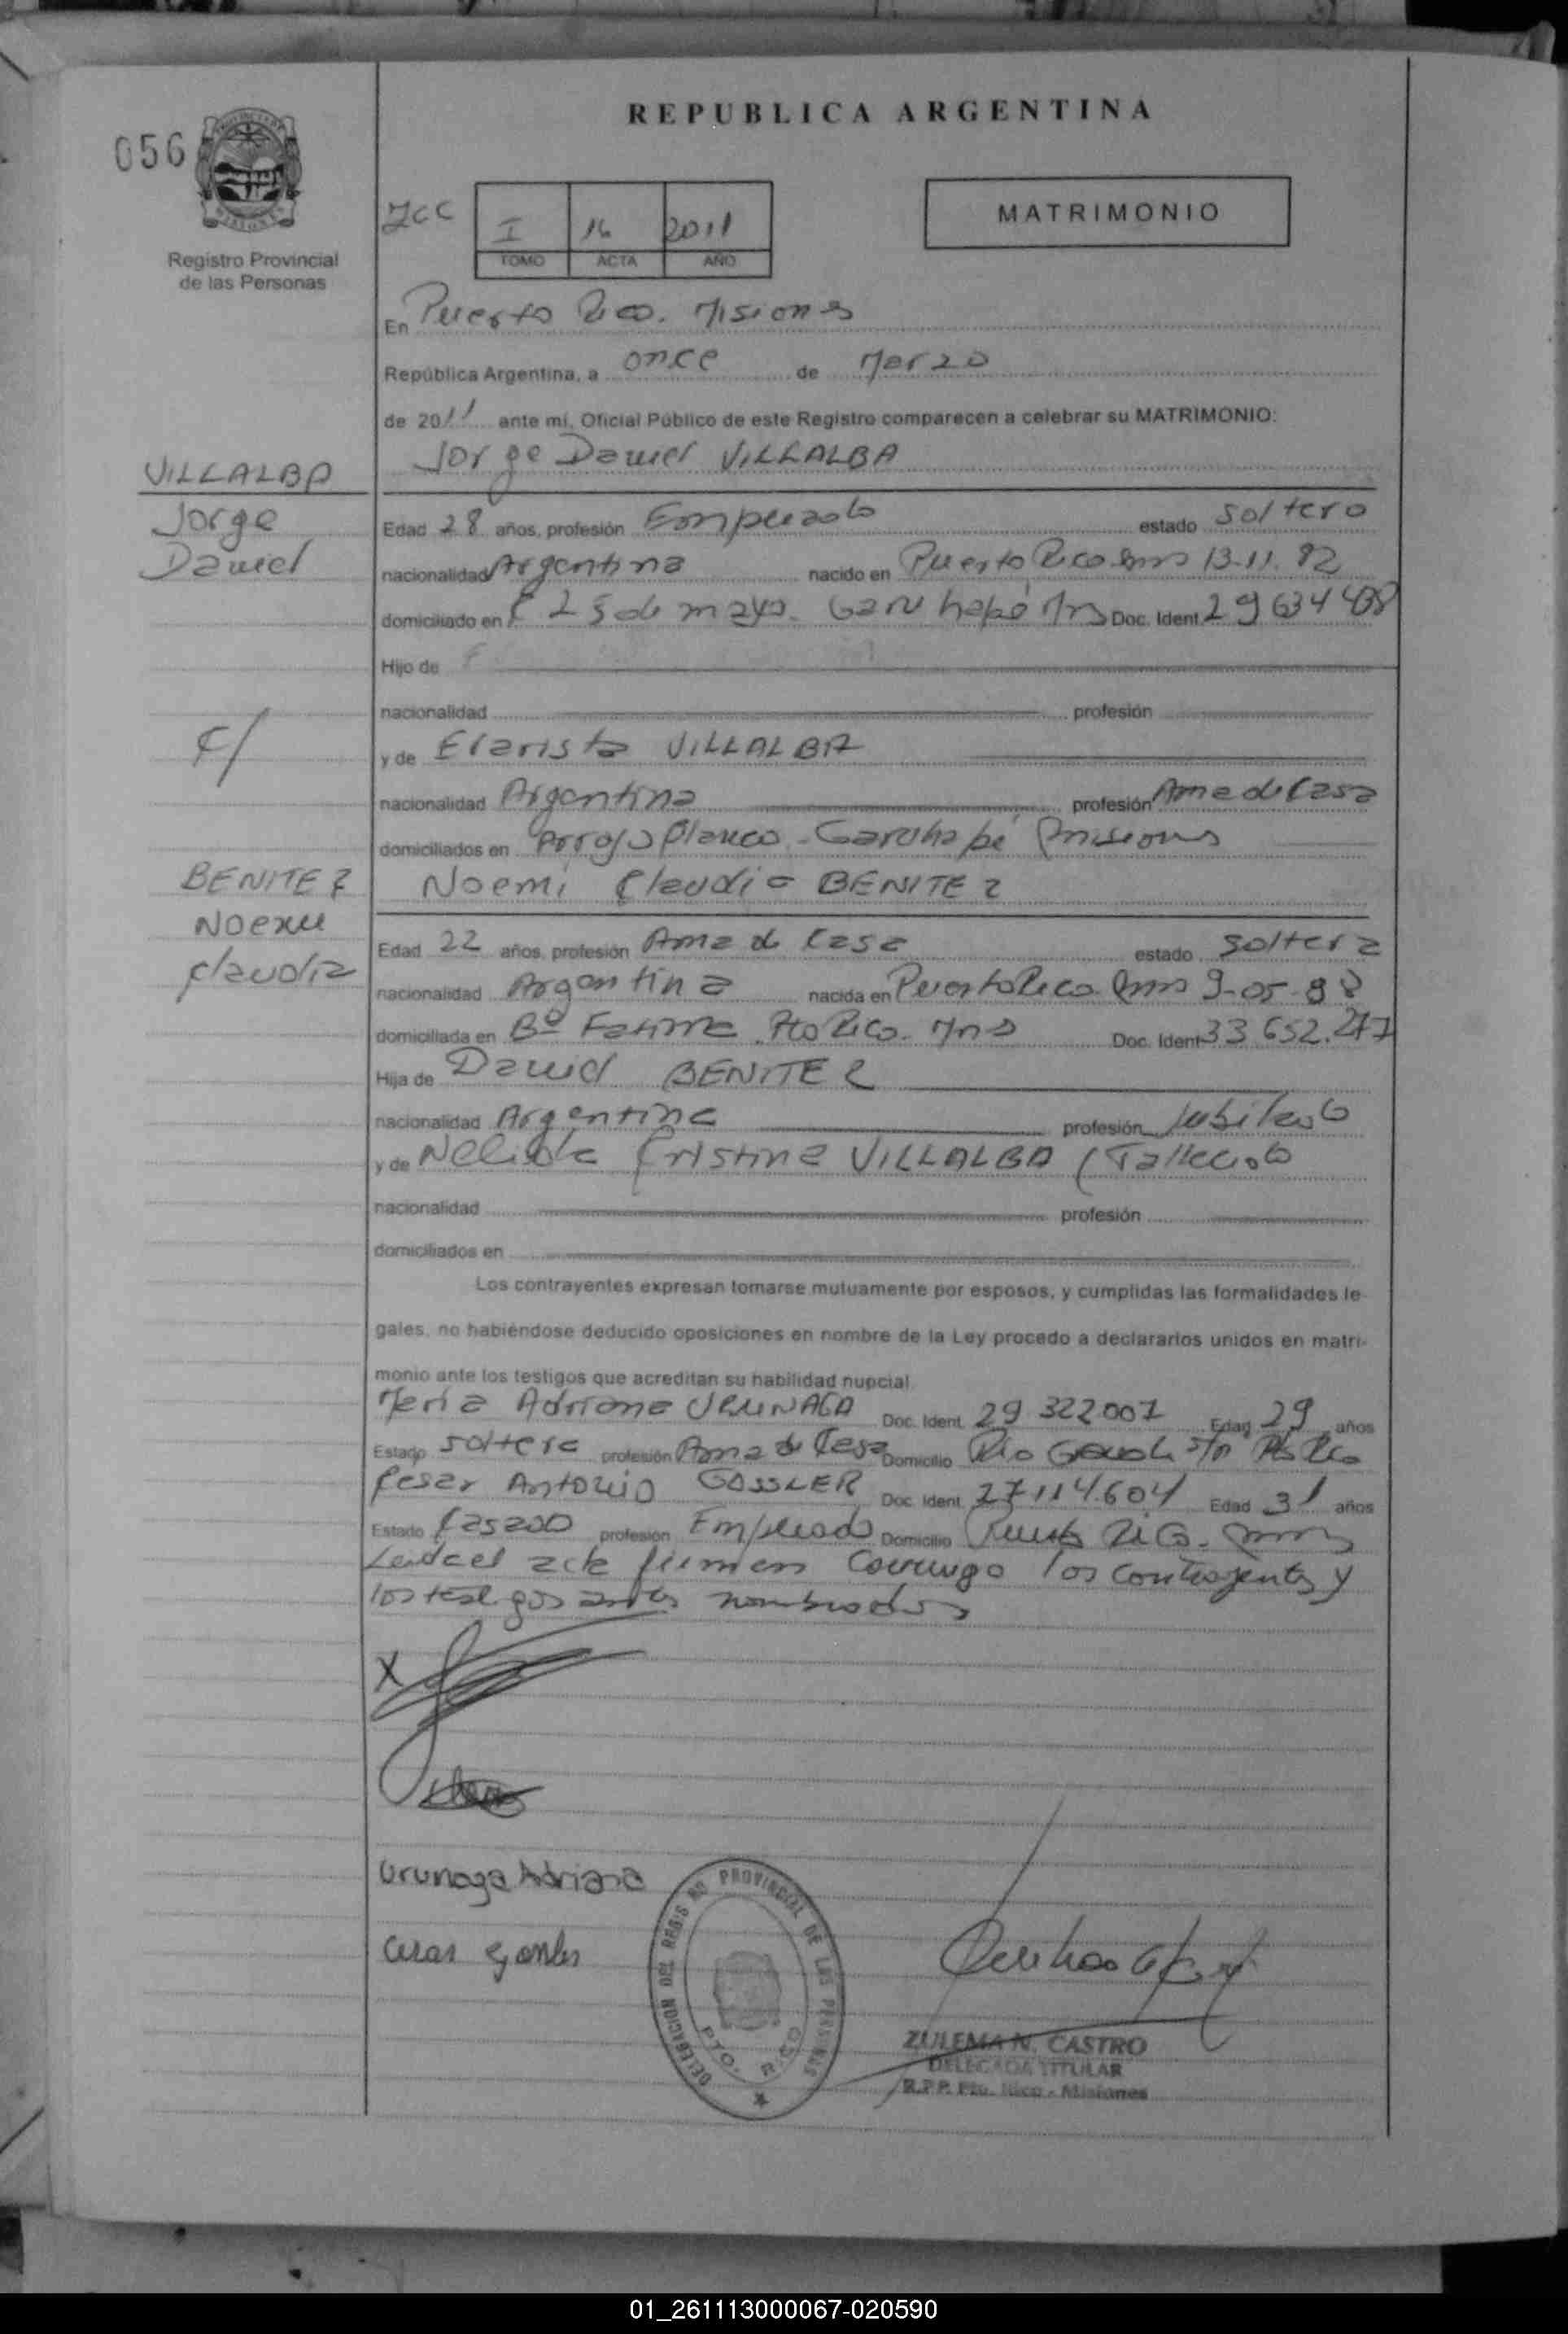 REPUBLICA ARGENTINA
056
Registro Provincial
de las Personas
I 16 2011
TOMO ACTA AÑO
MATRIMONIO
En Puerto Rico. Misiones
República Argentina, a once de Marzo
de 2011 ante mí, Oficial Público de este Registro comparecen a celebrar su MATRIMONIO:
VILLALBA
Jorge
Daniel
Jorge Daniel VILLALBA
Edad 28 años, profesión Empleado estado soltero
nacionalidad Argentina nacido en Puerto Rico 13.11.82
domiciliado en C 25 de mayo. Garuhapé Mns Doc. Ident. 29634498
Hijo de
nacionalidad profesión
c/
y de Elarista VILLALBA
nacionalidad Argentina profesión Ama de Casa
domiciliados en Arroyo Blanco - Garuhapé Misiones
BENITEZ
Noemi
Claudia
Noemi Claudia BENITEZ
Edad 22 años, profesión Ama de Casa estado soltera
nacionalidad Argentina nacida en Puerto Rico Mns 9-05-88
domiciliada en Bº Fatima Pto Rico. Mns Doc. Ident. 33 652.277
Hija de Daniel BENITEZ
nacionalidad Argentina profesión Jubilado
y de Nelida Cristina VILLALBA (Fallecida
nacionalidad profesión
domiciliados en
Los contrayentes expresan tomarse mutuamente por esposos, y cumplidas las formalidades le-
gales, no habiéndose deducido oposiciones en nombre de la Ley procedo a declararlos unidos en matri-
monio ante los testigos que acreditan su habilidad nupcial
Maria Adriana URUNAGA Doc. Ident. 29 322007 Edad 29 años
Estado soltera profesión Ama de Casa Domicilio s/n Pto Rico
Cesar Antonio GOSSLER Doc. Ident. 27114.604 Edad 31 años
Estado Casado profesión Empleado Domicilio Puerto Rico. Mns
Leida el acta firman conmigo los contrayentes y
los testigos antes nombrados
X
Urunaga Adriana
PROVINCIAL DE LAS PERSONAS
DELEGACION DEL REGISTRO
PTO. RICO
ZULEMA N. CASTRO
DELEGADA TITULAR
R.P.P. Pto. Rico - Misiones
01_261113000067-020590